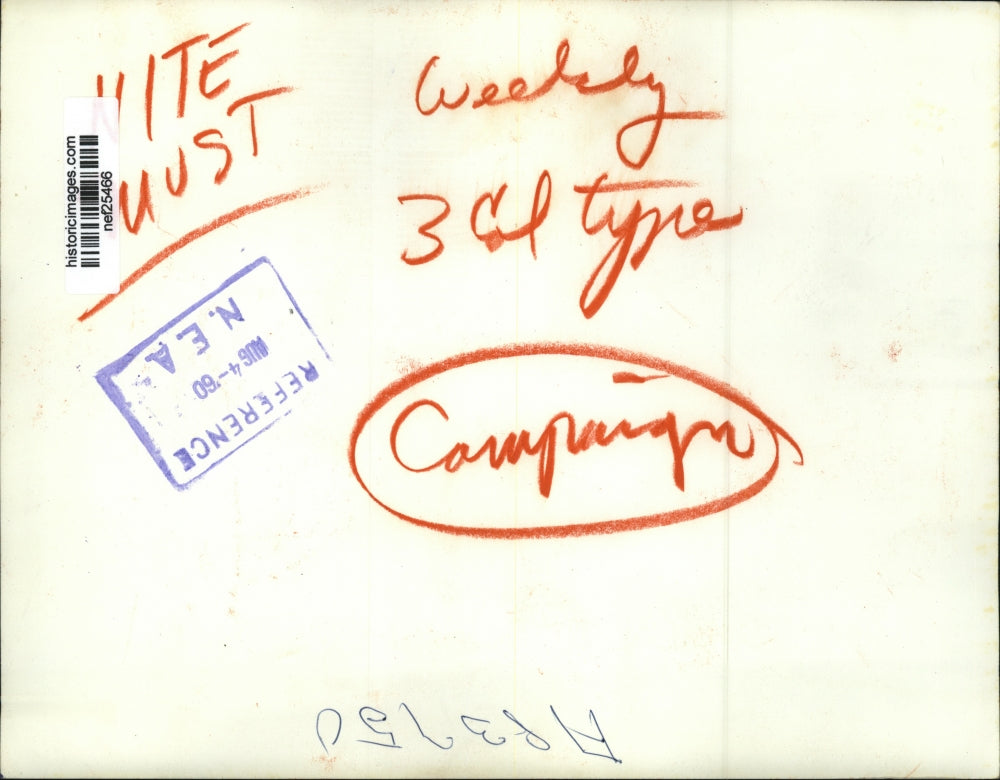 NITE
MUST
Weekly
3 Col type
Campaign
historicimages.com
nef25466
REFERENCE
AUG 4-'60
N.E.A.